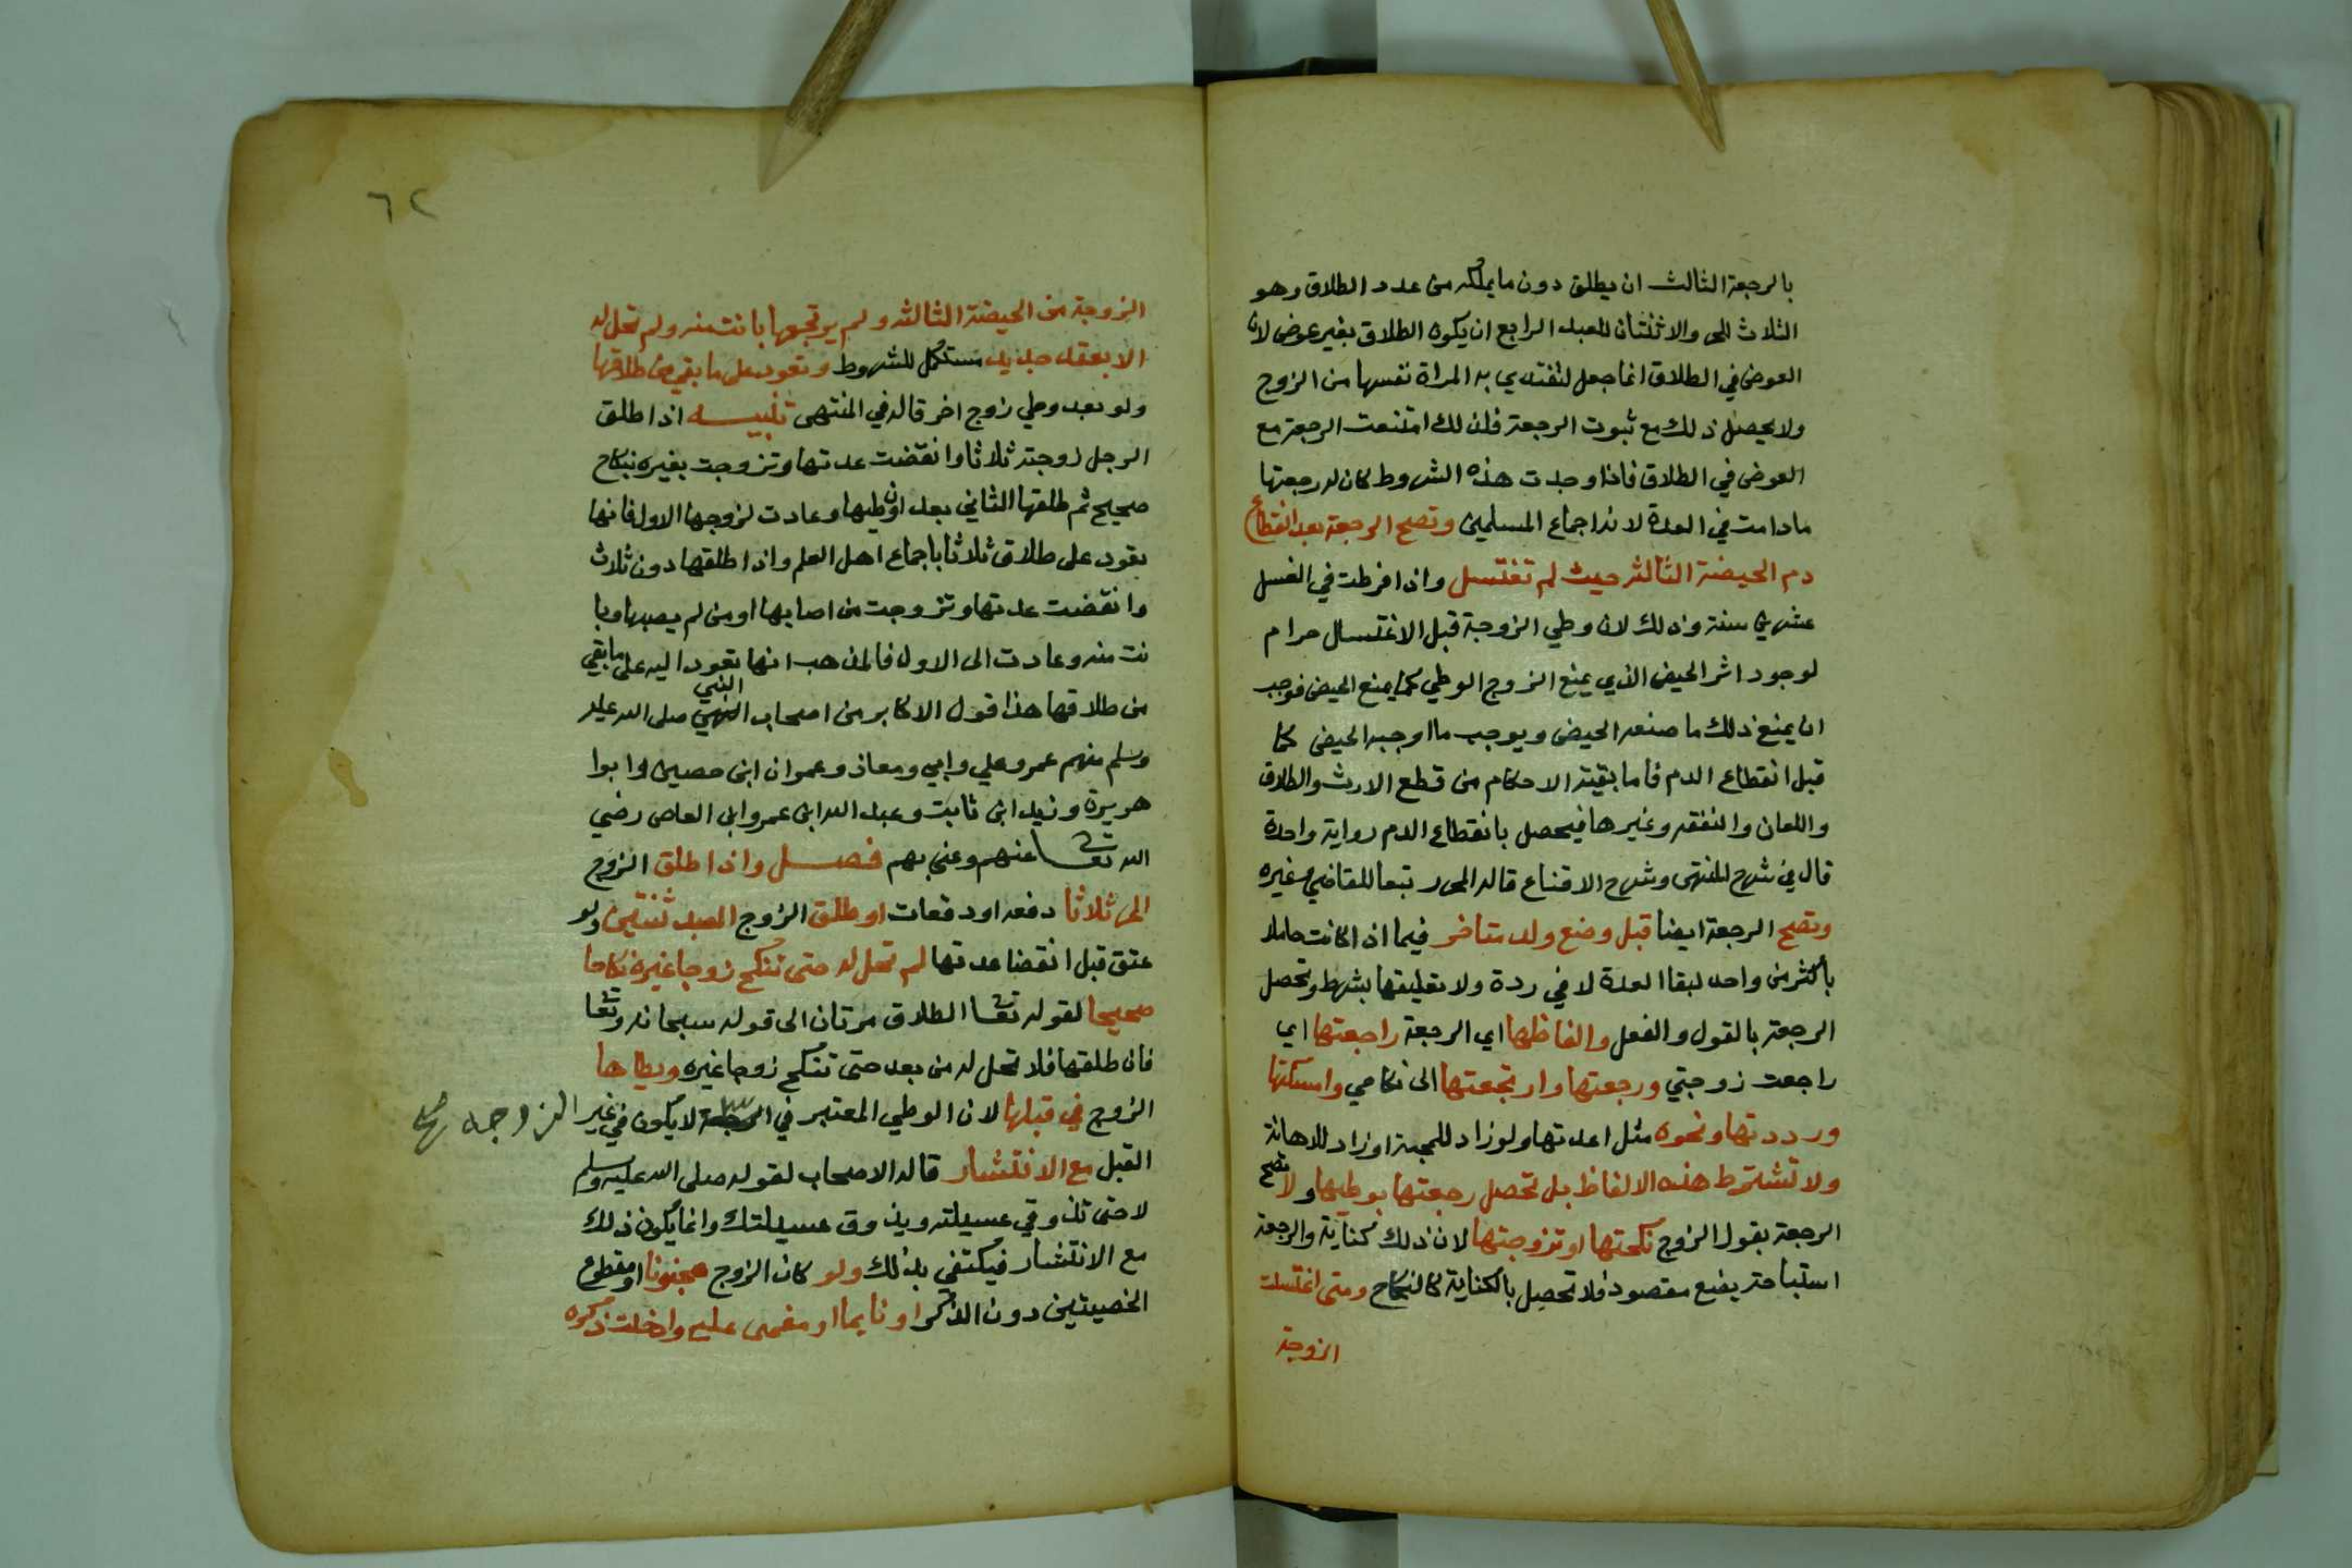 بالرجعة الثالث ان يطلق دون ما يملكه من عدد الطلاق وهو
الثلاث للحر والاثنتان للعبد الرابع ان يكون الطلاق بغير عوض لان
العوض في الطلاق انما جعل لتفتدي به المراة نفسها من الزوج
ولا يحصل ذلك مع ثبوت الرجعة فلذلك امتنعت الرجعة مع
العوض في الطلاق فاذا وجدت هذه الشروط كان له رجعتها
مادامت في العدة لانه اجماع المسلمين وتصح الرجعة بعد انقطاع
دم الحيضة الثالثة حيث لم تغتسل واذا فرطت في الغسل
عشرين سنة وذلك لان وطي الزوجة قبل الاغتسال حرام
لوجود اثر الحيض الذي يمنع الزوج الوطي كما يمنع الحيض فوجب
ان يمنع ذلك ما صنعه الحيض ويوجب ما اوجبه الحيض كما
قبل انقطاع الدم فاما بقية الاحكام من قطع الارث والطلاق
واللعان والنفقه وغيرها فيحصل بانقطاع الدم رواية واحدة
قال في شرح المنتهى وشرح الاقناع قاله المحرر تبعا للقاضي وغيره
وتصح الرجعة ايضا قبل وضع ولد متاخر فيما اذا كانت حاملا
باكثر من واحد لبقا العدة لا في ردة ولا تعليقها بشرط وتحصل
الرجعة بالقول والفعل والفاظها اي الرجعة راجعتها اي
راجعت زوجتي ورجعتها وارتجعتها الى نكاحي وامسكتها
ورددتها ونحوه مثل اعدتها ولو زاد للمحبة او زاد للاهانة
ولا تشترط هذه الالفاظ بل تحصل رجعتها بوطيها ولا تصح
الرجعة بقول الزوج نكحتها او تزوجتها لان ذلك كناية والرجعة
استباحة بضع مقصود فلا تحصل بالكناية كالنكاح ومتى اغتسلت
الزوجة
٦٢
الزوجة من الحيضة الثالثة ولم يرتجعها بانت منه ولم تحل له
الا بعقد جديد مستكمل للشروط وتعود على ما بقي من طلاقها
ولو بعد وطي زوج اخر قاله في المنتهى تنبيه اذا طلق
الرجل زوجته ثلاثا وانقضت عدتها وتزوجت بغيره بنكاح
صحيح ثم طلقها الثاني بعد ان وطيها وعادت لزوجها الاول فانها
تعود على طلاق ثلاثا باجماع اهل العلم واذا طلقها دون ثلاث
وانقضت عدتها وتزوجت من اصابها او من لم يصبها وبا
نت منه وعادت الى الاول فالمذهب انها تعود اليه على ما بقي
من طلاقها هذا قول الاكابر من اصحاب النبي صلى الله عليه
وسلم منهم عمر وعلي وابي ومعاذ وعمران ابن حصين وابوا
هريرة وزيد ابن ثابت وعبد الله ابن عمرو ابن العاص رضي
الله تعا عنهم وعني بهم فصل واذا طلق الزوج
الحر ثلاثا دفعه او دفعات او طلق الزوج العبد ثنتين ولو
عتق قبل انقضا عدتها لم تحل له حتى تنكح زوجا غيره نكاحا
صحيحا لقوله تعا الطلاق مرتان الى قوله سبحانه وتعا
فان طلقها فلا تحل له من بعد حتى تنكح زوجا غيره ويطاها
الزوج في قبلها لان الوطي المعتبر في لا يكون في غير الزوجه صح
القبل مع الانتشار قاله الاصحاب لقوله صلى الله عليه وسلم
لا حتى تذوقي عسيلته ويذوق عسيلتك وانما يكون ذلك
مع الانتشار فيكتفي بذلك ولو كان الزوج مجنونا او مقطوع
الخصيتين دون الذكر او نايما او مغمى عليه وادخلت ذكره